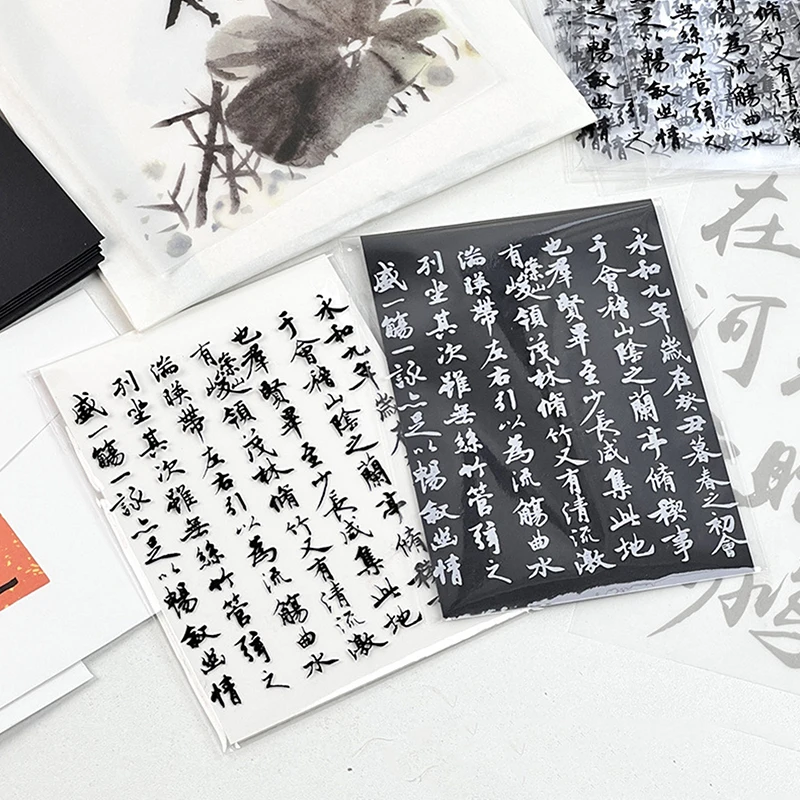 永和九年
于會稽山陰之蘭亭脩
也羣賢畢至少長咸集此地
有崇山峻領茂林脩竹又有清流激
湍暎帶左右引以為流觴曲水
列坐其次雖無絲竹管弦之
盛一觴一詠亦足以暢敘幽情
永和九年歲在癸丑暮春之初會
于會稽山陰之蘭亭脩稧事
也羣賢畢至少長咸集此地
有崇山峻領茂林脩竹又有清流激
湍暎帶左右引以為流觴曲水
列坐其次雖無絲竹管弦之
盛一觴一詠亦足以暢敘幽情
脩竹又有清流
為流觴曲水
絲竹管弦之
以暢敘幽情
在河